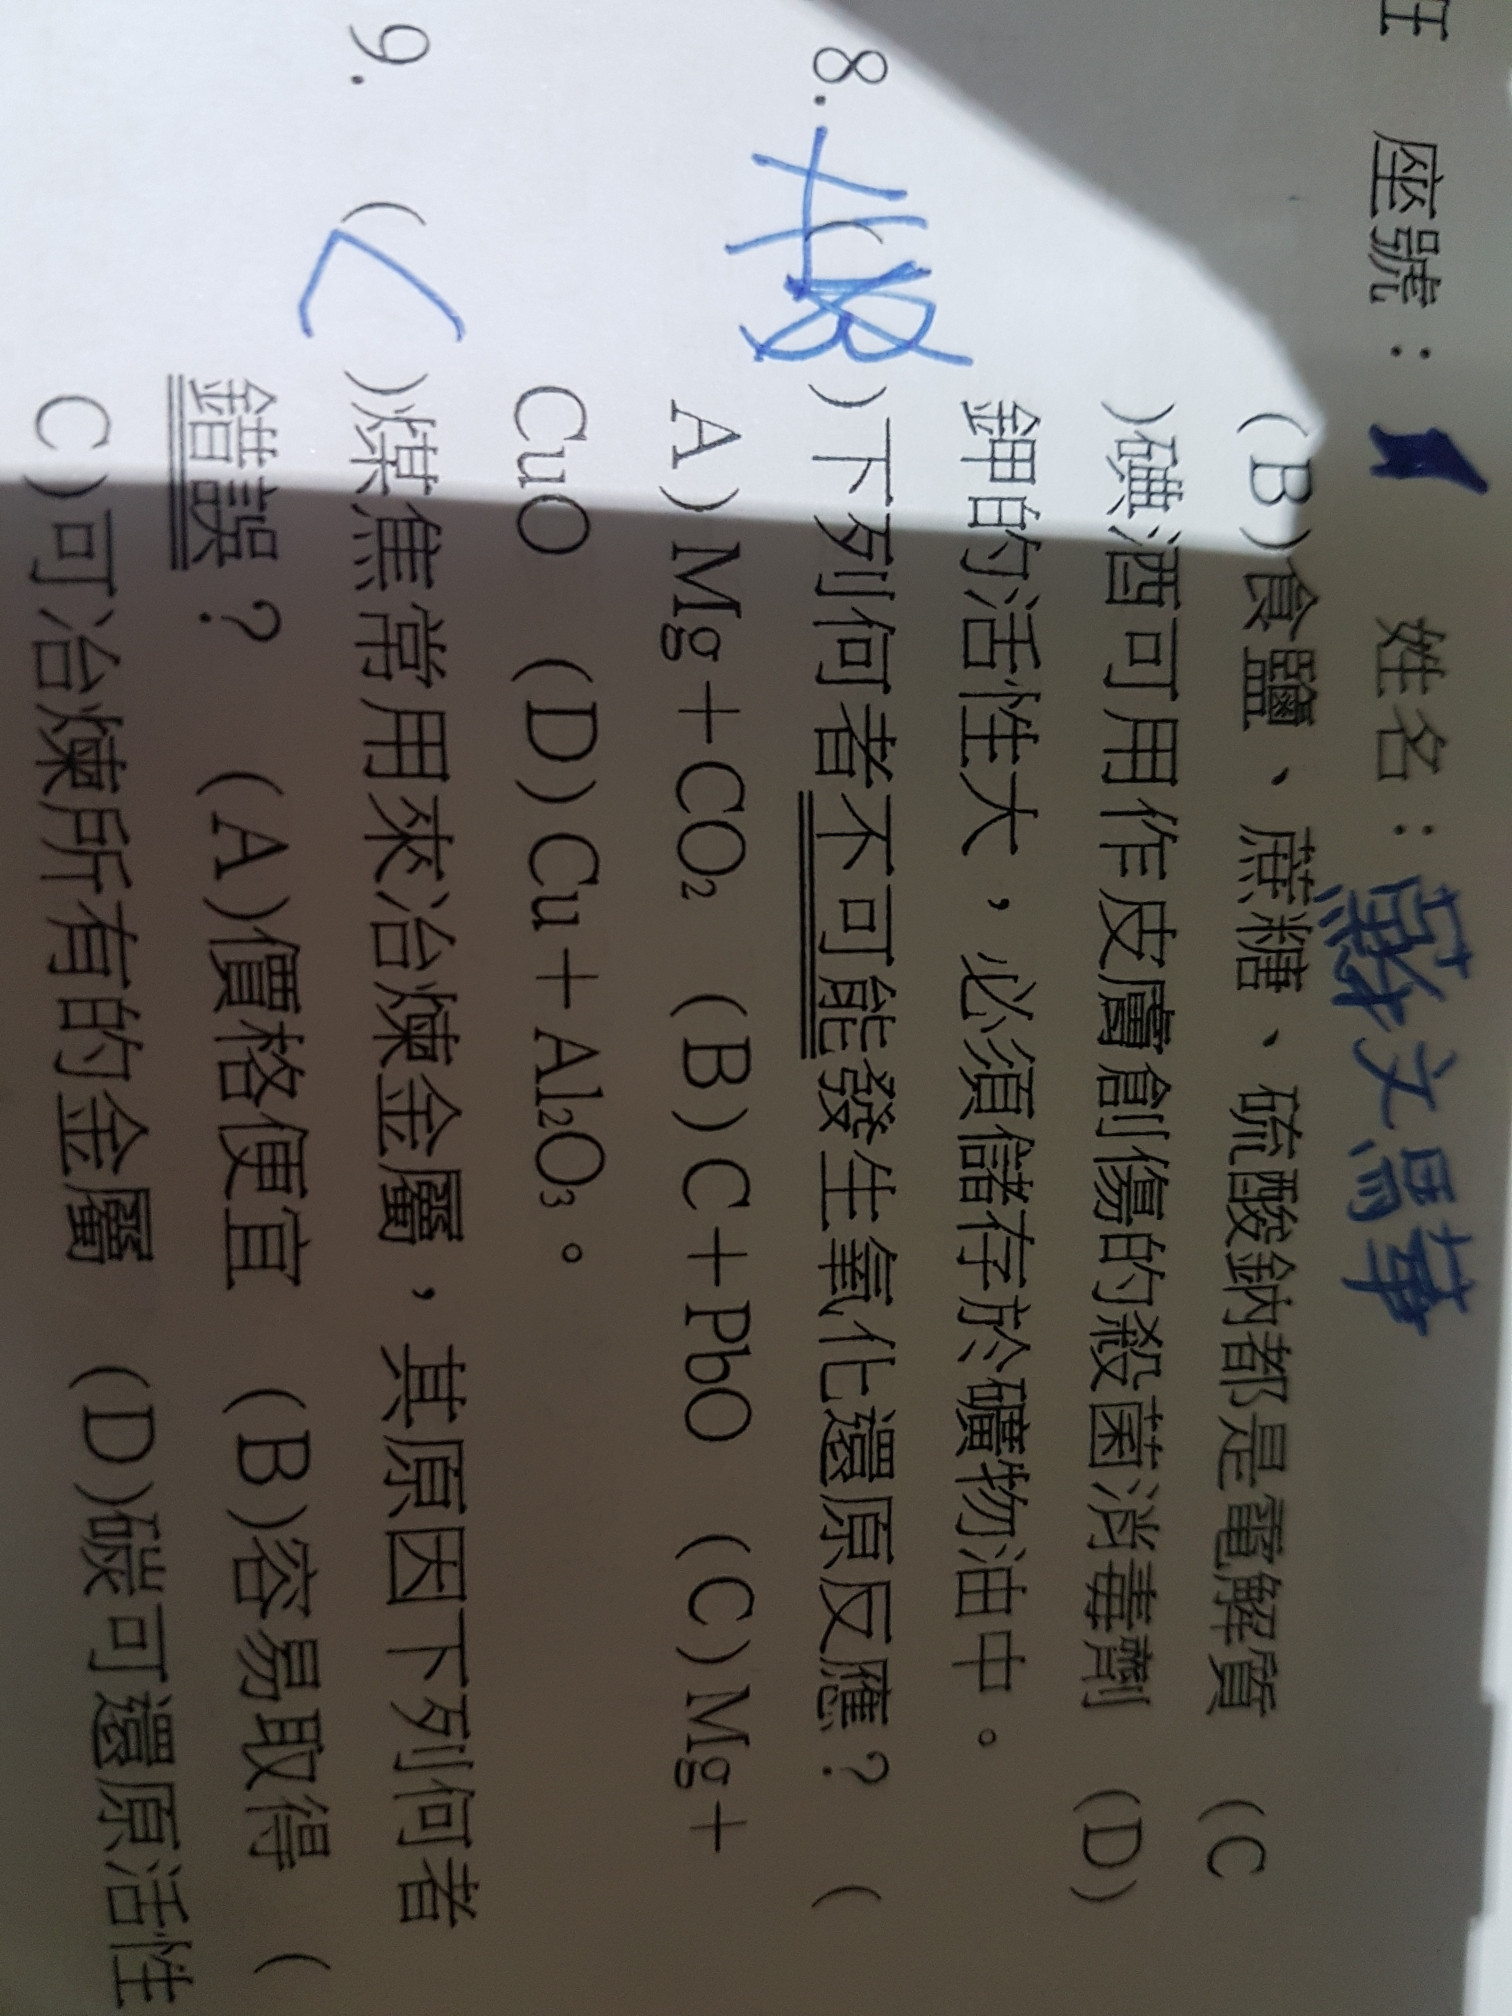 座號： 姓名：
(B)食鹽、蔗糖、硫酸鈉都是電解質 (C
)碘酒可用作皮膚創傷的殺菌消毒劑 (D)
鉀的活性大，必須儲存於礦物油中。
8. ( B )下列何者不可能發生氧化還原反應？ (
A)Mg＋CO₂ (B)C＋PbO (C)Mg＋
CuO (D)Cu＋Al₂O₃。
9. ( C )煤焦常用來冶煉金屬，其原因下列何者
錯誤？ (A)價格便宜 (B)容易取得 (
C)可冶煉所有的金屬 (D)碳可還原活性